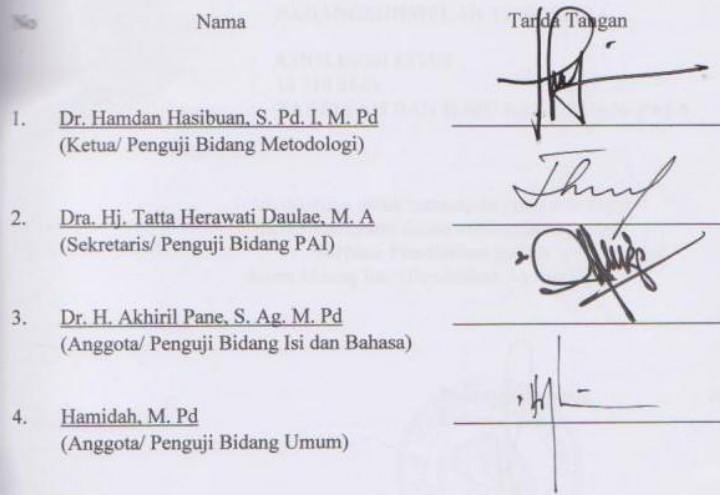 No Nama Tanda Tangan
1. Dr. Hamdan Hasibuan, S. Pd. I, M. Pd
(Ketua/ Penguji Bidang Metodologi)
2. Dra. Hj. Tatta Herawati Daulae, M. A
(Sekretaris/ Penguji Bidang PAI)
3. Dr. H. Akhiril Pane, S. Ag. M. Pd
(Anggota/ Penguji Bidang Isi dan Bahasa)
4. Hamidah, M. Pd
(Anggota/ Penguji Bidang Umum)